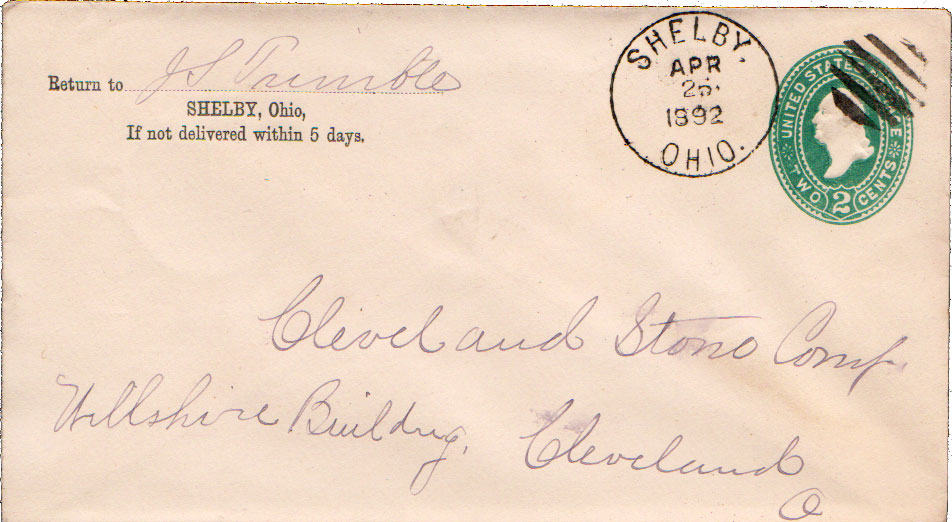 Return to J S Trimble
SHELBY, Ohio,
If not delivered within 5 days.
SHELBY.
APR
25
1892
OHIO.
UNITED STATES
TWO 2 CENTS
Cleveland Stone Comp.
Willshire Building,
Cleveland
O